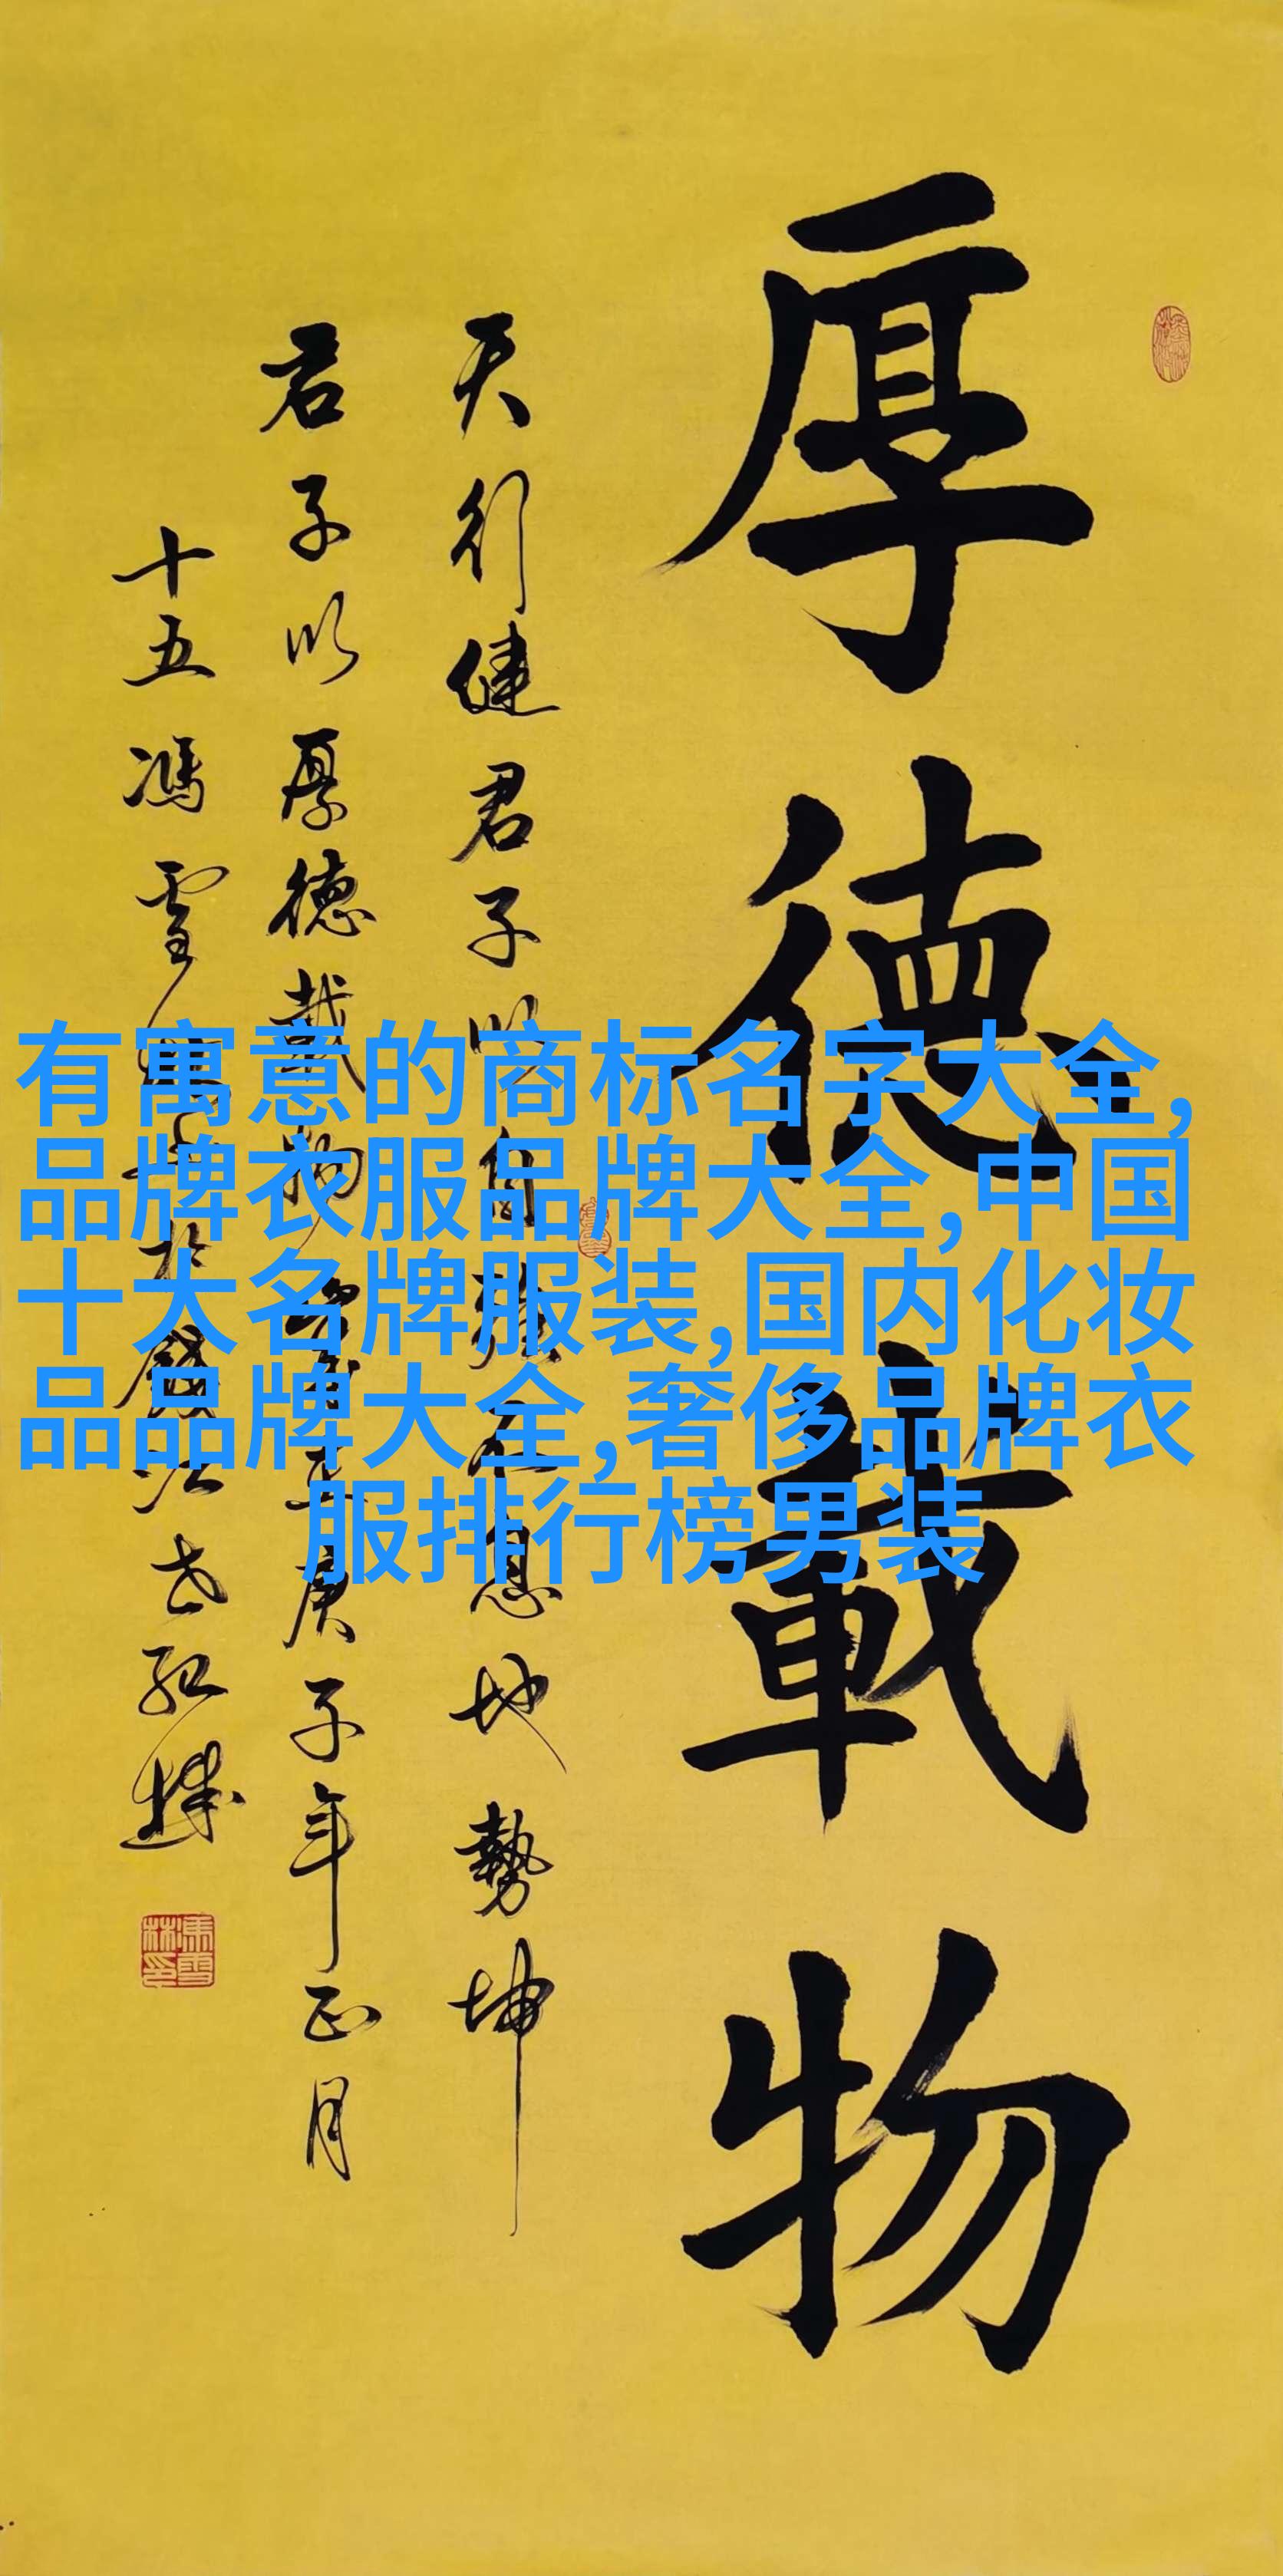 厚徳載物
天行健君子以自強不息地勢坤
君子以厚徳載物庚子年正月
十五馮雪林書於錢江世紀城
馮雪林印
有寓意的商标名字大全,
品牌衣服品牌大全,中国
十大名牌服装,国内化妆
品品牌大全,奢侈品牌衣
服排行榜男装